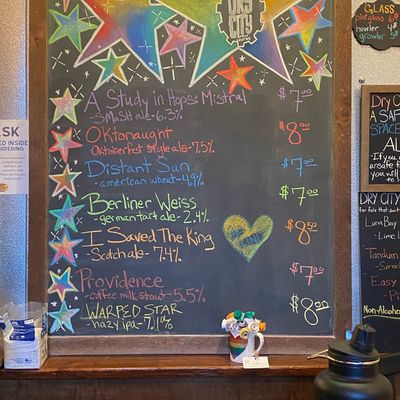 DRY CITY
A Study in Hops: Mistral
-SMASH ale-6.3%
$7.00
Oktonaught
Oktoberfest style alc-7.5%
$8.00
Distant Sun
-american wheat-4.9%
$7.00
Berliner Weiss
-german tart ale-2.4%
$7.00
I Saved The King
-Scotch ale-7.4%
$8.50
Providence
-coffee milk stout-5.5%
$7.00
WARPED STAR
-hazy ipa-7.1%
$8.00
GLASS
pint glass 6
howler 4
growler 5
ASK
ED INSIDE
ORDERING
DRY C
A SAF
SPACE
AL
If you
DRY CITY
Luna Bay
- Lime
Tandum
Easy
NON-ALCOHOL